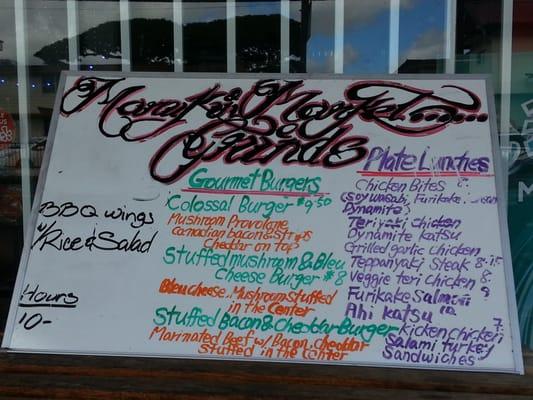 Grinds
BBQ wings
w/Rice & Salad
Hours
10-
Gourmet Burgers
Colossal Burger $9.50
Mushroom Provolane
canadian bacon &
Cheddar on top
Stuffed mushroom & Bleu
Cheese Burger $8
Bleu cheese, Mushroom stuffed
in the Center
Stuffed Bacon & Cheddar Burger
Marinated Beef w/ Bacon, cheddar
stuffed in the center
Plate Lunches
Chicken Bites 8.
(Soy wasabi, Furikake,
Dynamite)
Teriyaki chicken
Dynamite Katsu
Grilled garlic chicken
Teppanyaki Steak 8.75
Veggie teri chicken 8
Furikake Salmon 9
Ahi katsu
Kicken chicken
Salami turkey
Sandwiches